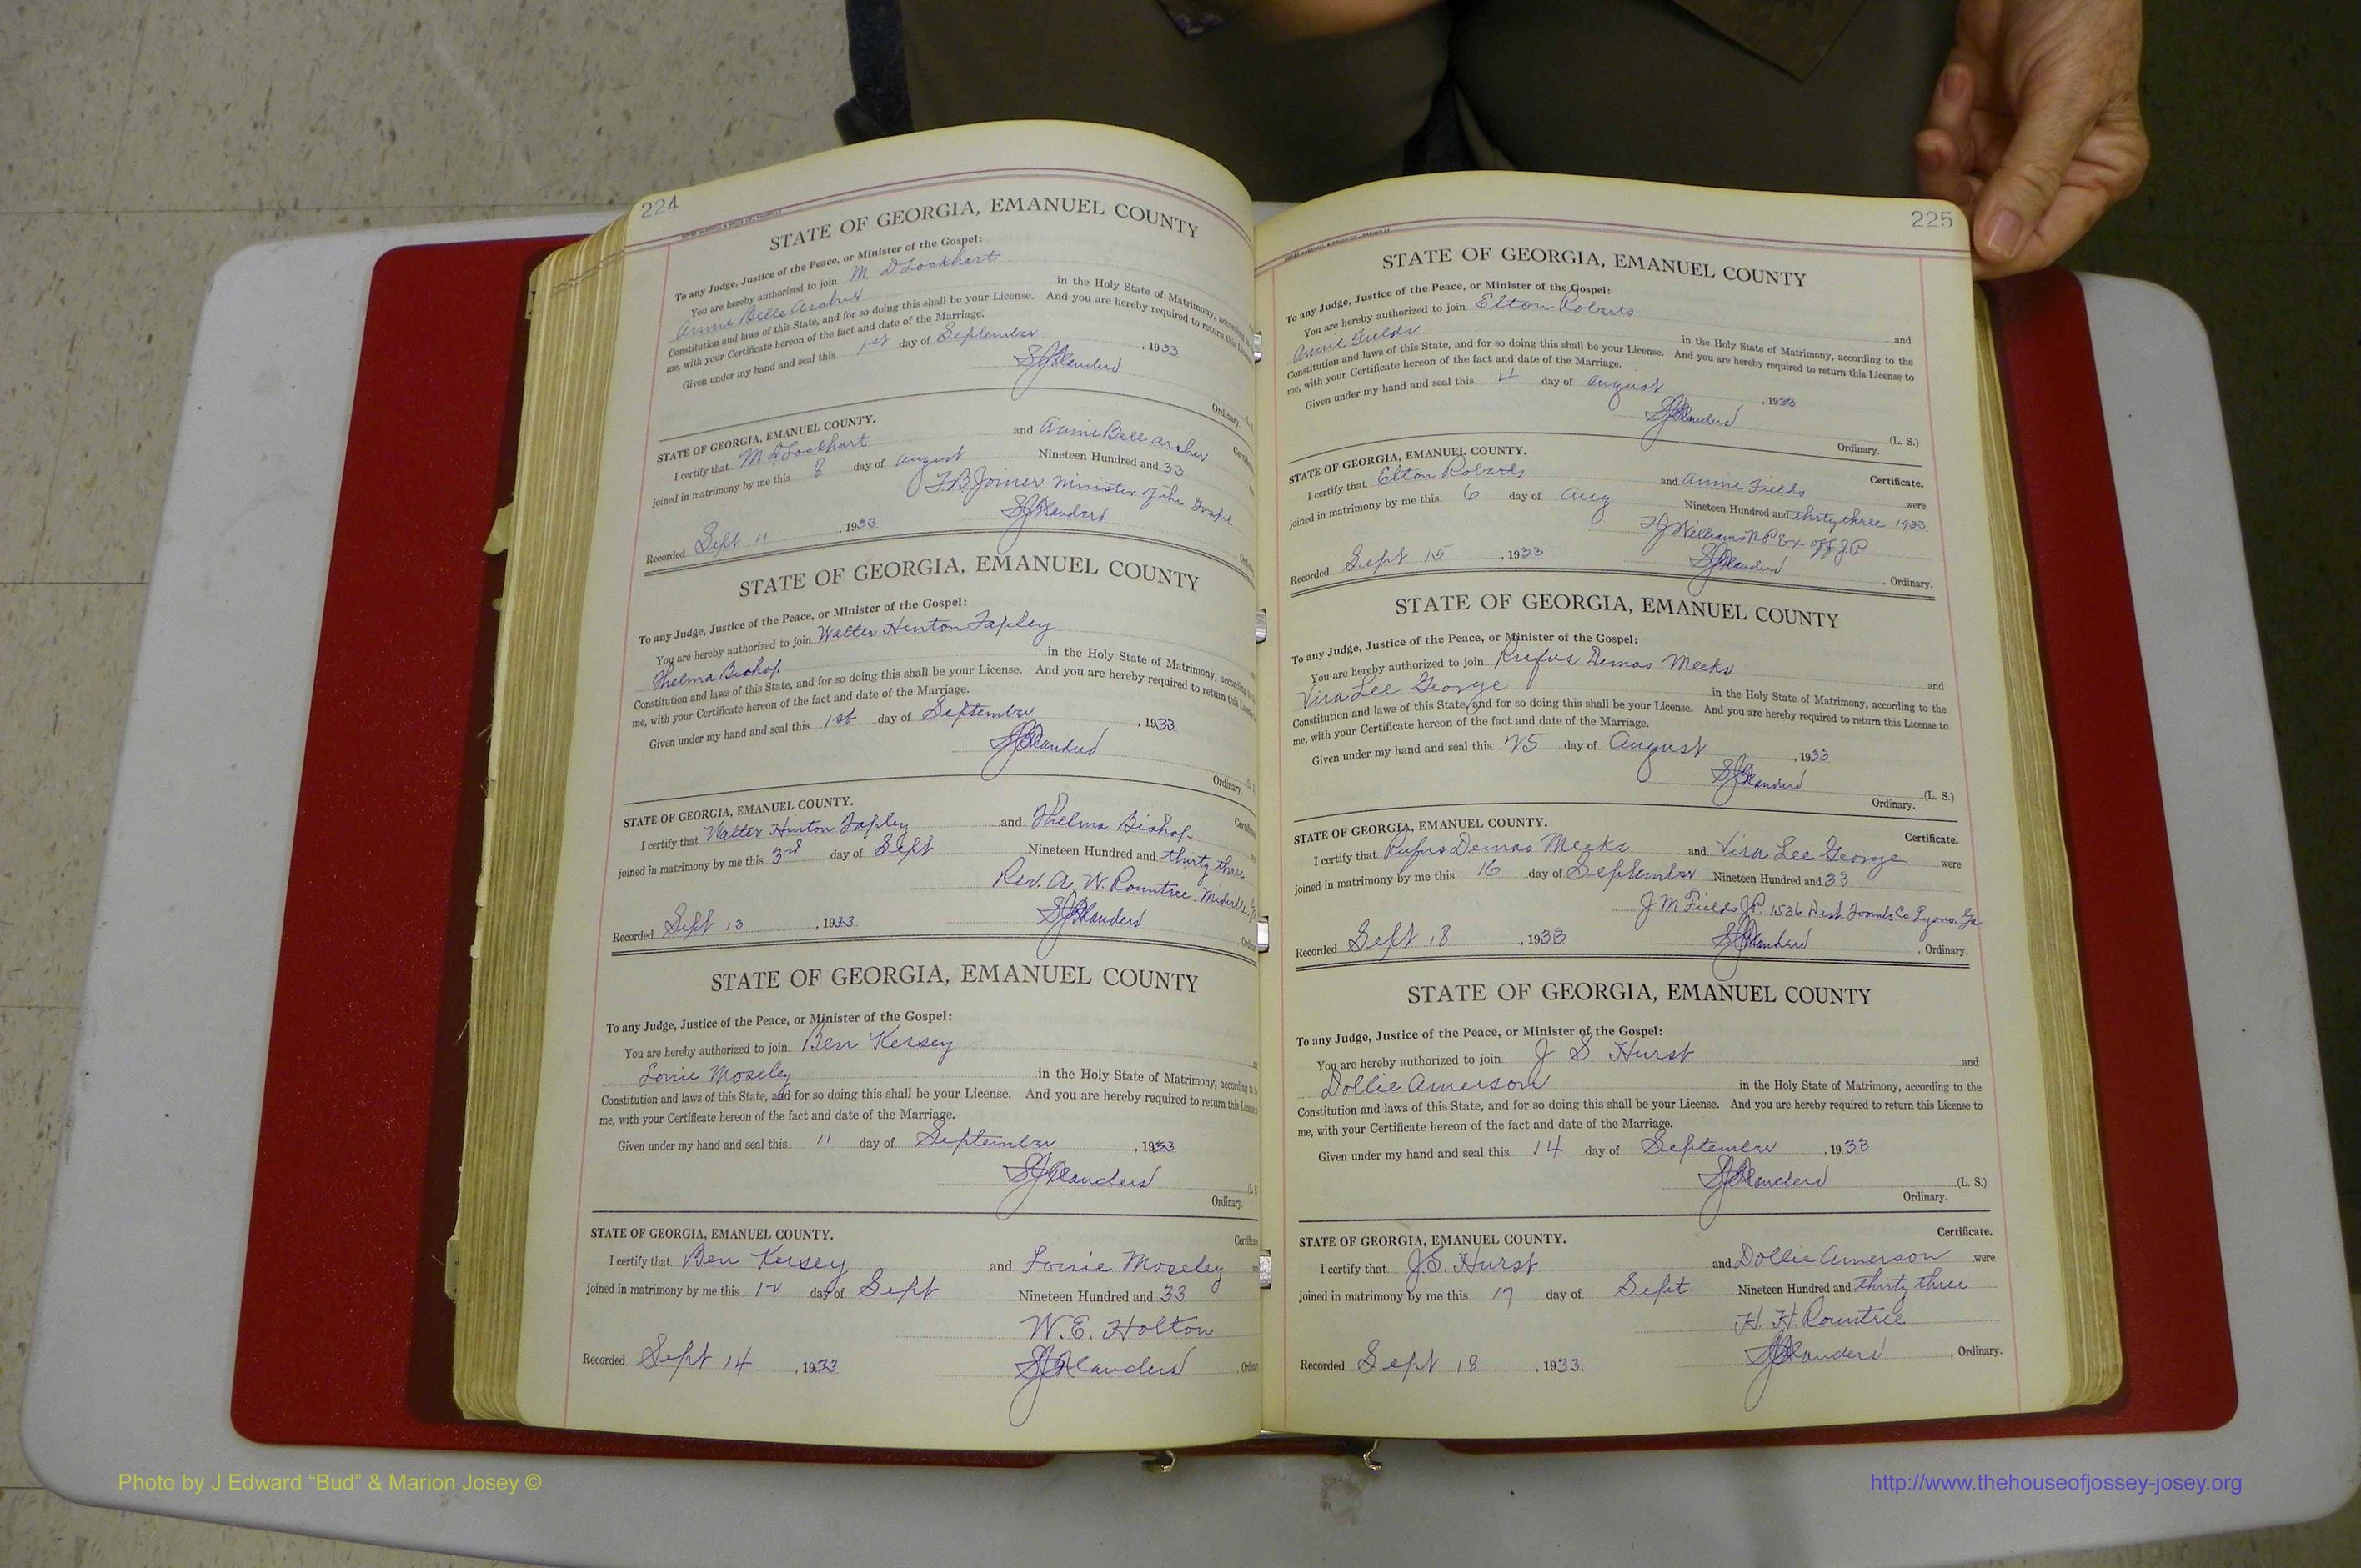 224
STATE OF GEORGIA, EMANUEL COUNTY
To any Judge, Justice of the Peace, or Minister of the Gospel:
You are hereby authorized to join M. D. Lockhart
Annie Belle Archer in the Holy State of Matrimony, according
Constitution and laws of this State, and for so doing this shall be your License. And you are hereby required to return this
me, with your Certificate hereon of the fact and date of the Marriage.
Given under my hand and seal this 1st day of September, 1933
Ordinary.
STATE OF GEORGIA, EMANUEL COUNTY.
I certify that M. D. Lockhart and Annie Bell Archer
joined in matrimony by me this 8 day of August Nineteen Hundred and 33
F B Joiner Minister of the Gospel
Recorded Sept 11, 1933
STATE OF GEORGIA, EMANUEL COUNTY
To any Judge, Justice of the Peace, or Minister of the Gospel:
You are hereby authorized to join Walter Hinton Tapley
Thelma Bishop in the Holy State of Matrimony, according
Constitution and laws of this State, and for so doing this shall be your License. And you are hereby required to return this
me, with your Certificate hereon of the fact and date of the Marriage.
Given under my hand and seal this 1st day of September, 1933
Ordinary.
STATE OF GEORGIA, EMANUEL COUNTY.
I certify that Walter Hinton Tapley and Thelma Bishop
joined in matrimony by me this 3rd day of Sept Nineteen Hundred and thirty three
Rev. A. W. Rountree.
Recorded Sept 13, 1933
STATE OF GEORGIA, EMANUEL COUNTY
To any Judge, Justice of the Peace, or Minister of the Gospel:
You are hereby authorized to join Ben Kersey
Lonie Moseley in the Holy State of Matrimony, according to
Constitution and laws of this State, and for so doing this shall be your License. And you are hereby required to return this
me, with your Certificate hereon of the fact and date of the Marriage.
Given under my hand and seal this 11 day of September, 1933
S J Flanders
Ordinary.
STATE OF GEORGIA, EMANUEL COUNTY.
I certify that Ben Kersey and Lonie Moseley
joined in matrimony by me this 12 day of Sept Nineteen Hundred and 33
W. E. Holton
Recorded Sept 14, 1933 S J Flanders
225
STATE OF GEORGIA, EMANUEL COUNTY
To any Judge, Justice of the Peace, or Minister of the Gospel:
You are hereby authorized to join Elton Roberts and
Annie Fields in the Holy State of Matrimony, according to the
Constitution and laws of this State, and for so doing this shall be your License. And you are hereby required to return this License to
me, with your Certificate hereon of the fact and date of the Marriage.
Given under my hand and seal this 4 day of August, 1933
S J Flanders (L. S.)
Ordinary.
STATE OF GEORGIA, EMANUEL COUNTY. Certificate.
I certify that Elton Roberts and Annie Fields were
joined in matrimony by me this 6 day of Aug Nineteen Hundred and thirty three 1933
Williams N P Ex off J P
Recorded Sept 15, 1933 S J Flanders, Ordinary.
STATE OF GEORGIA, EMANUEL COUNTY
To any Judge, Justice of the Peace, or Minister of the Gospel:
You are hereby authorized to join Rufus Demas Meeks and
Vira Lee George in the Holy State of Matrimony, according to the
Constitution and laws of this State, and for so doing this shall be your License. And you are hereby required to return this License to
me, with your Certificate hereon of the fact and date of the Marriage.
Given under my hand and seal this 25 day of August, 1933
S J Flanders (L. S.)
Ordinary.
STATE OF GEORGIA, EMANUEL COUNTY. Certificate.
I certify that Rufus Demas Meeks and Vira Lee George were
joined in matrimony by me this 16 day of September Nineteen Hundred and 33
J M Fields J.P. 1536 Dist. Toombs Co. Lyons. Ga
Recorded Sept 18, 1933 S J Flanders, Ordinary.
STATE OF GEORGIA, EMANUEL COUNTY
To any Judge, Justice of the Peace, or Minister of the Gospel:
You are hereby authorized to join J S Hurst and
Dollie Amerson in the Holy State of Matrimony, according to the
Constitution and laws of this State, and for so doing this shall be your License. And you are hereby required to return this License to
me, with your Certificate hereon of the fact and date of the Marriage.
Given under my hand and seal this 14 day of September, 1933
S J Flanders (L. S.)
Ordinary.
STATE OF GEORGIA, EMANUEL COUNTY. Certificate.
I certify that J. S. Hurst and Dollie Amerson were
joined in matrimony by me this 17 day of Sept. Nineteen Hundred and thirty three
H. H. Rountree
Recorded Sept 18, 1933. S J Flanders, Ordinary.
Photo by J Edward “Bud” & Marion Josey ©
http://www.thehouseofjossey-josey.org